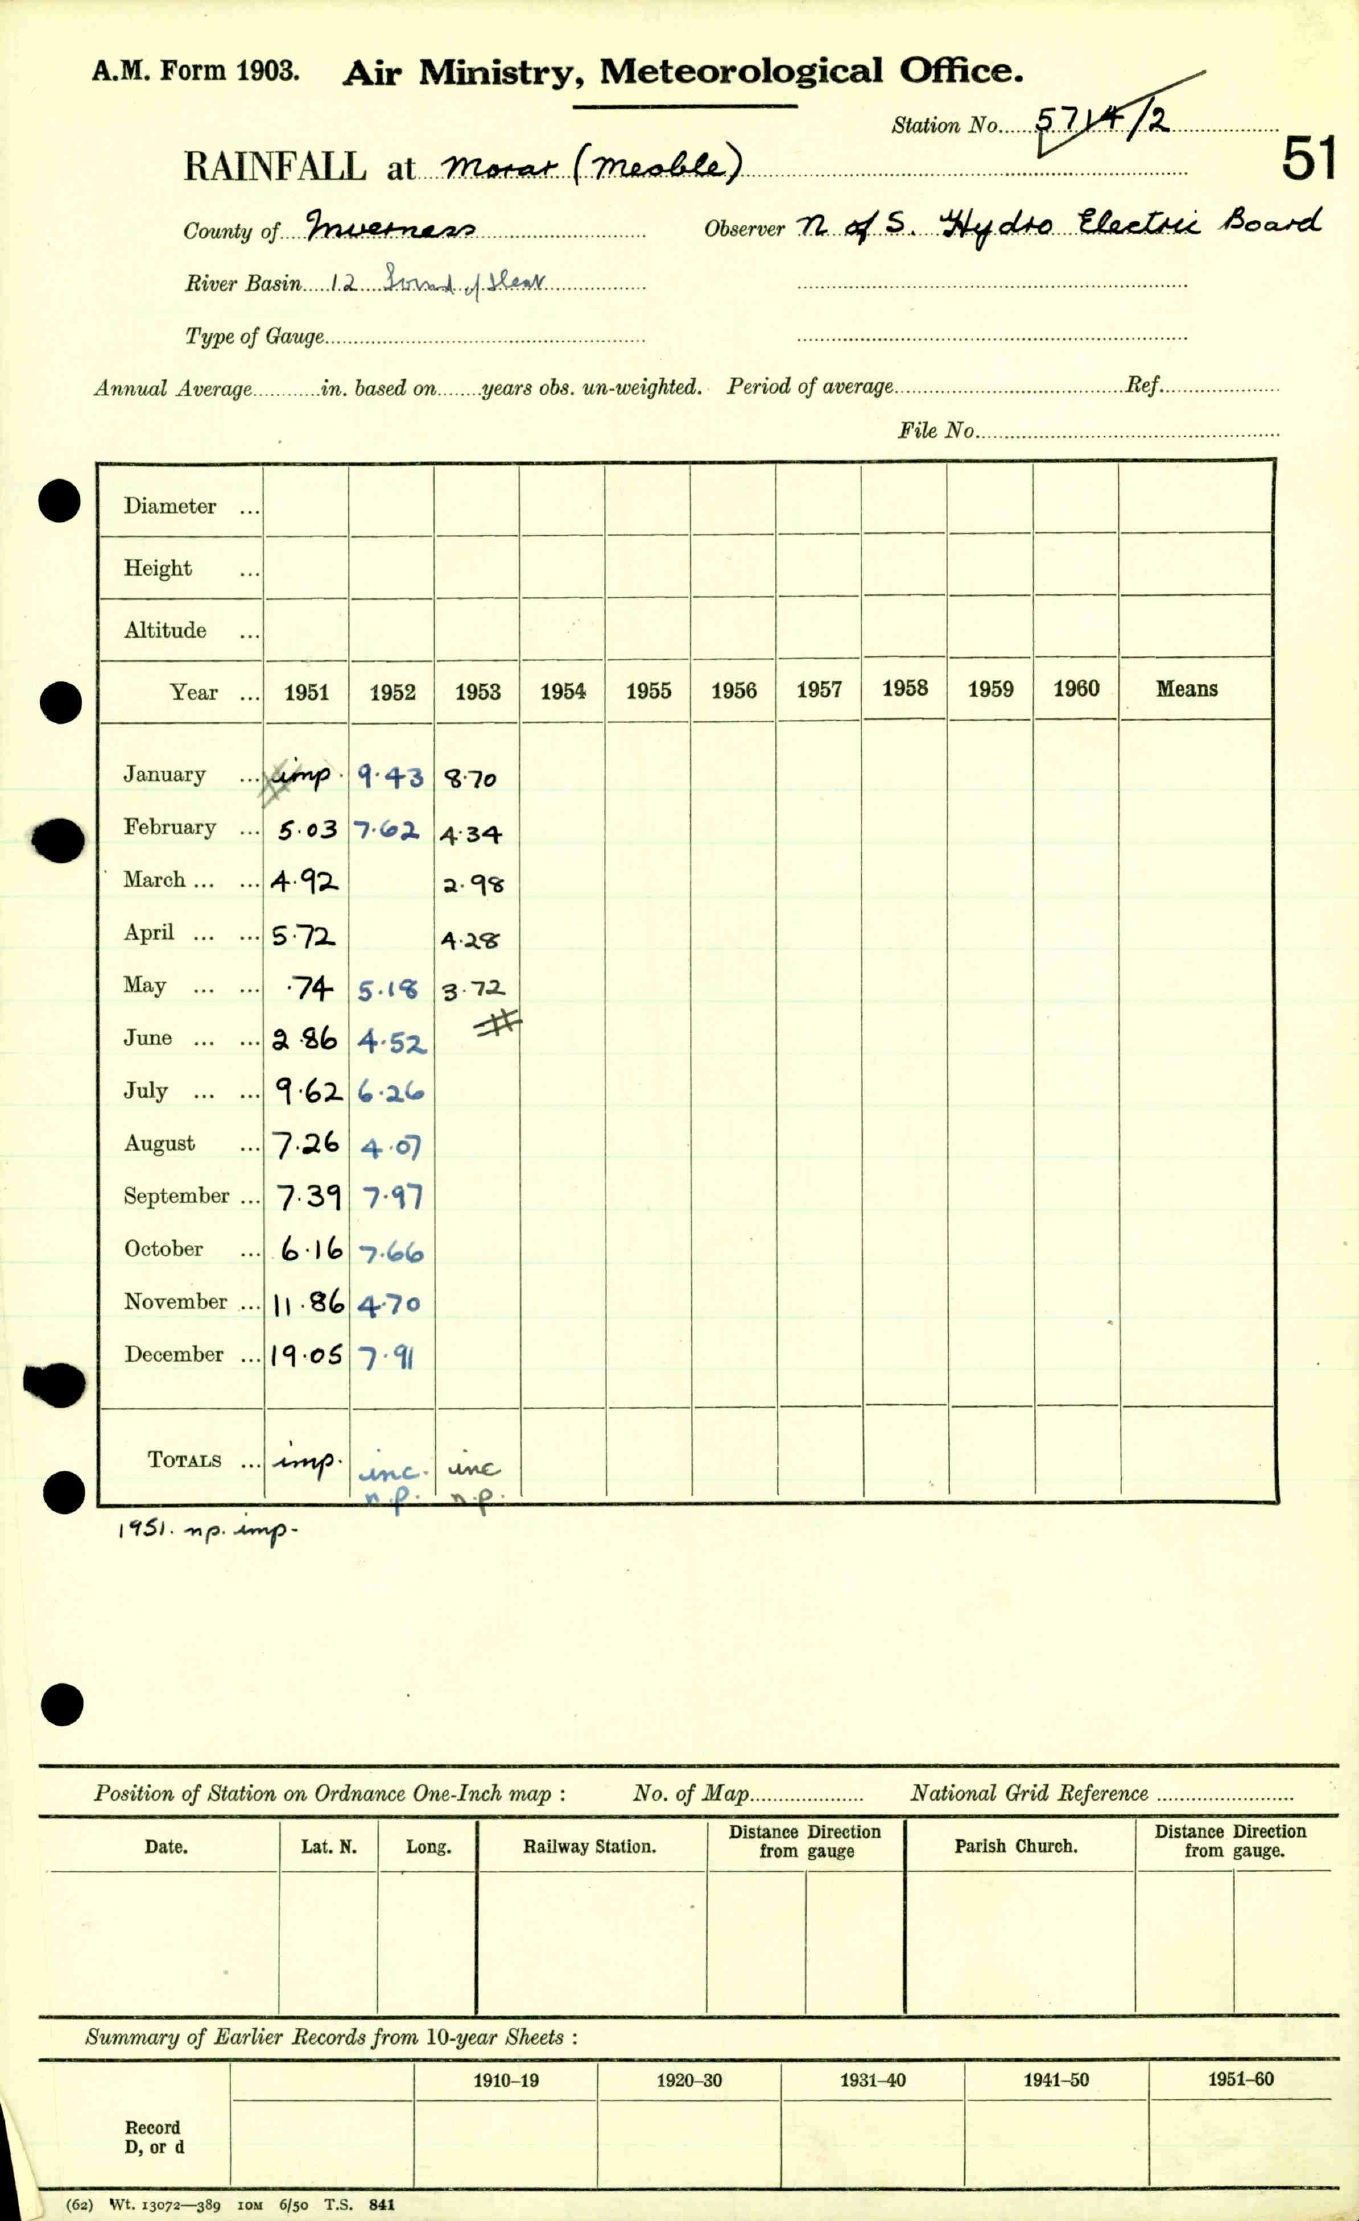 A.M. Form 1903. Air Ministry, Meteorological Office.
Station No. 5714/2
51
RAINFALL at Morar (Meoble)
County of Inverness Observer N of S. Hydro Electric Board
River Basin 12 Sound of Sleat
Type of Gauge
Annual Average in. based on years obs. un-weighted. Period of average Ref.
File No.
Diameter ...
Height ...
Altitude ...
Year ... 1951 1952 1953 1954 1955 1956 1957 1958 1959 1960 Means
January ... imp. 9.43 8.70
February ... 5.03 7.62 4.34
March ... ... 4.92 2.98
April ... ... 5.72 4.28
May ... ... .74 5.18 3.72
June ... ... 2.86 4.52
July ... ... 9.62 6.26
August ... 7.26 4.07
September ... 7.39 7.97
October ... 6.16 7.66
November ... 11.86 4.70
December ... 19.05 7.91
TOTALS ... imp. inc. inc
n.p. n.p.
1951. np. imp.
Position of Station on Ordnance One-Inch map : No. of Map National Grid Reference
Date. Lat. N. Long. Railway Station. Distance Direction from gauge Parish Church. Distance Direction from gauge.
Summary of Earlier Records from 10-year Sheets :
1910–19 1920–30 1931–40 1941–50 1951–60
Record
D, or d
(62) Wt. 13072—389 10M 6/50 T.S. 841